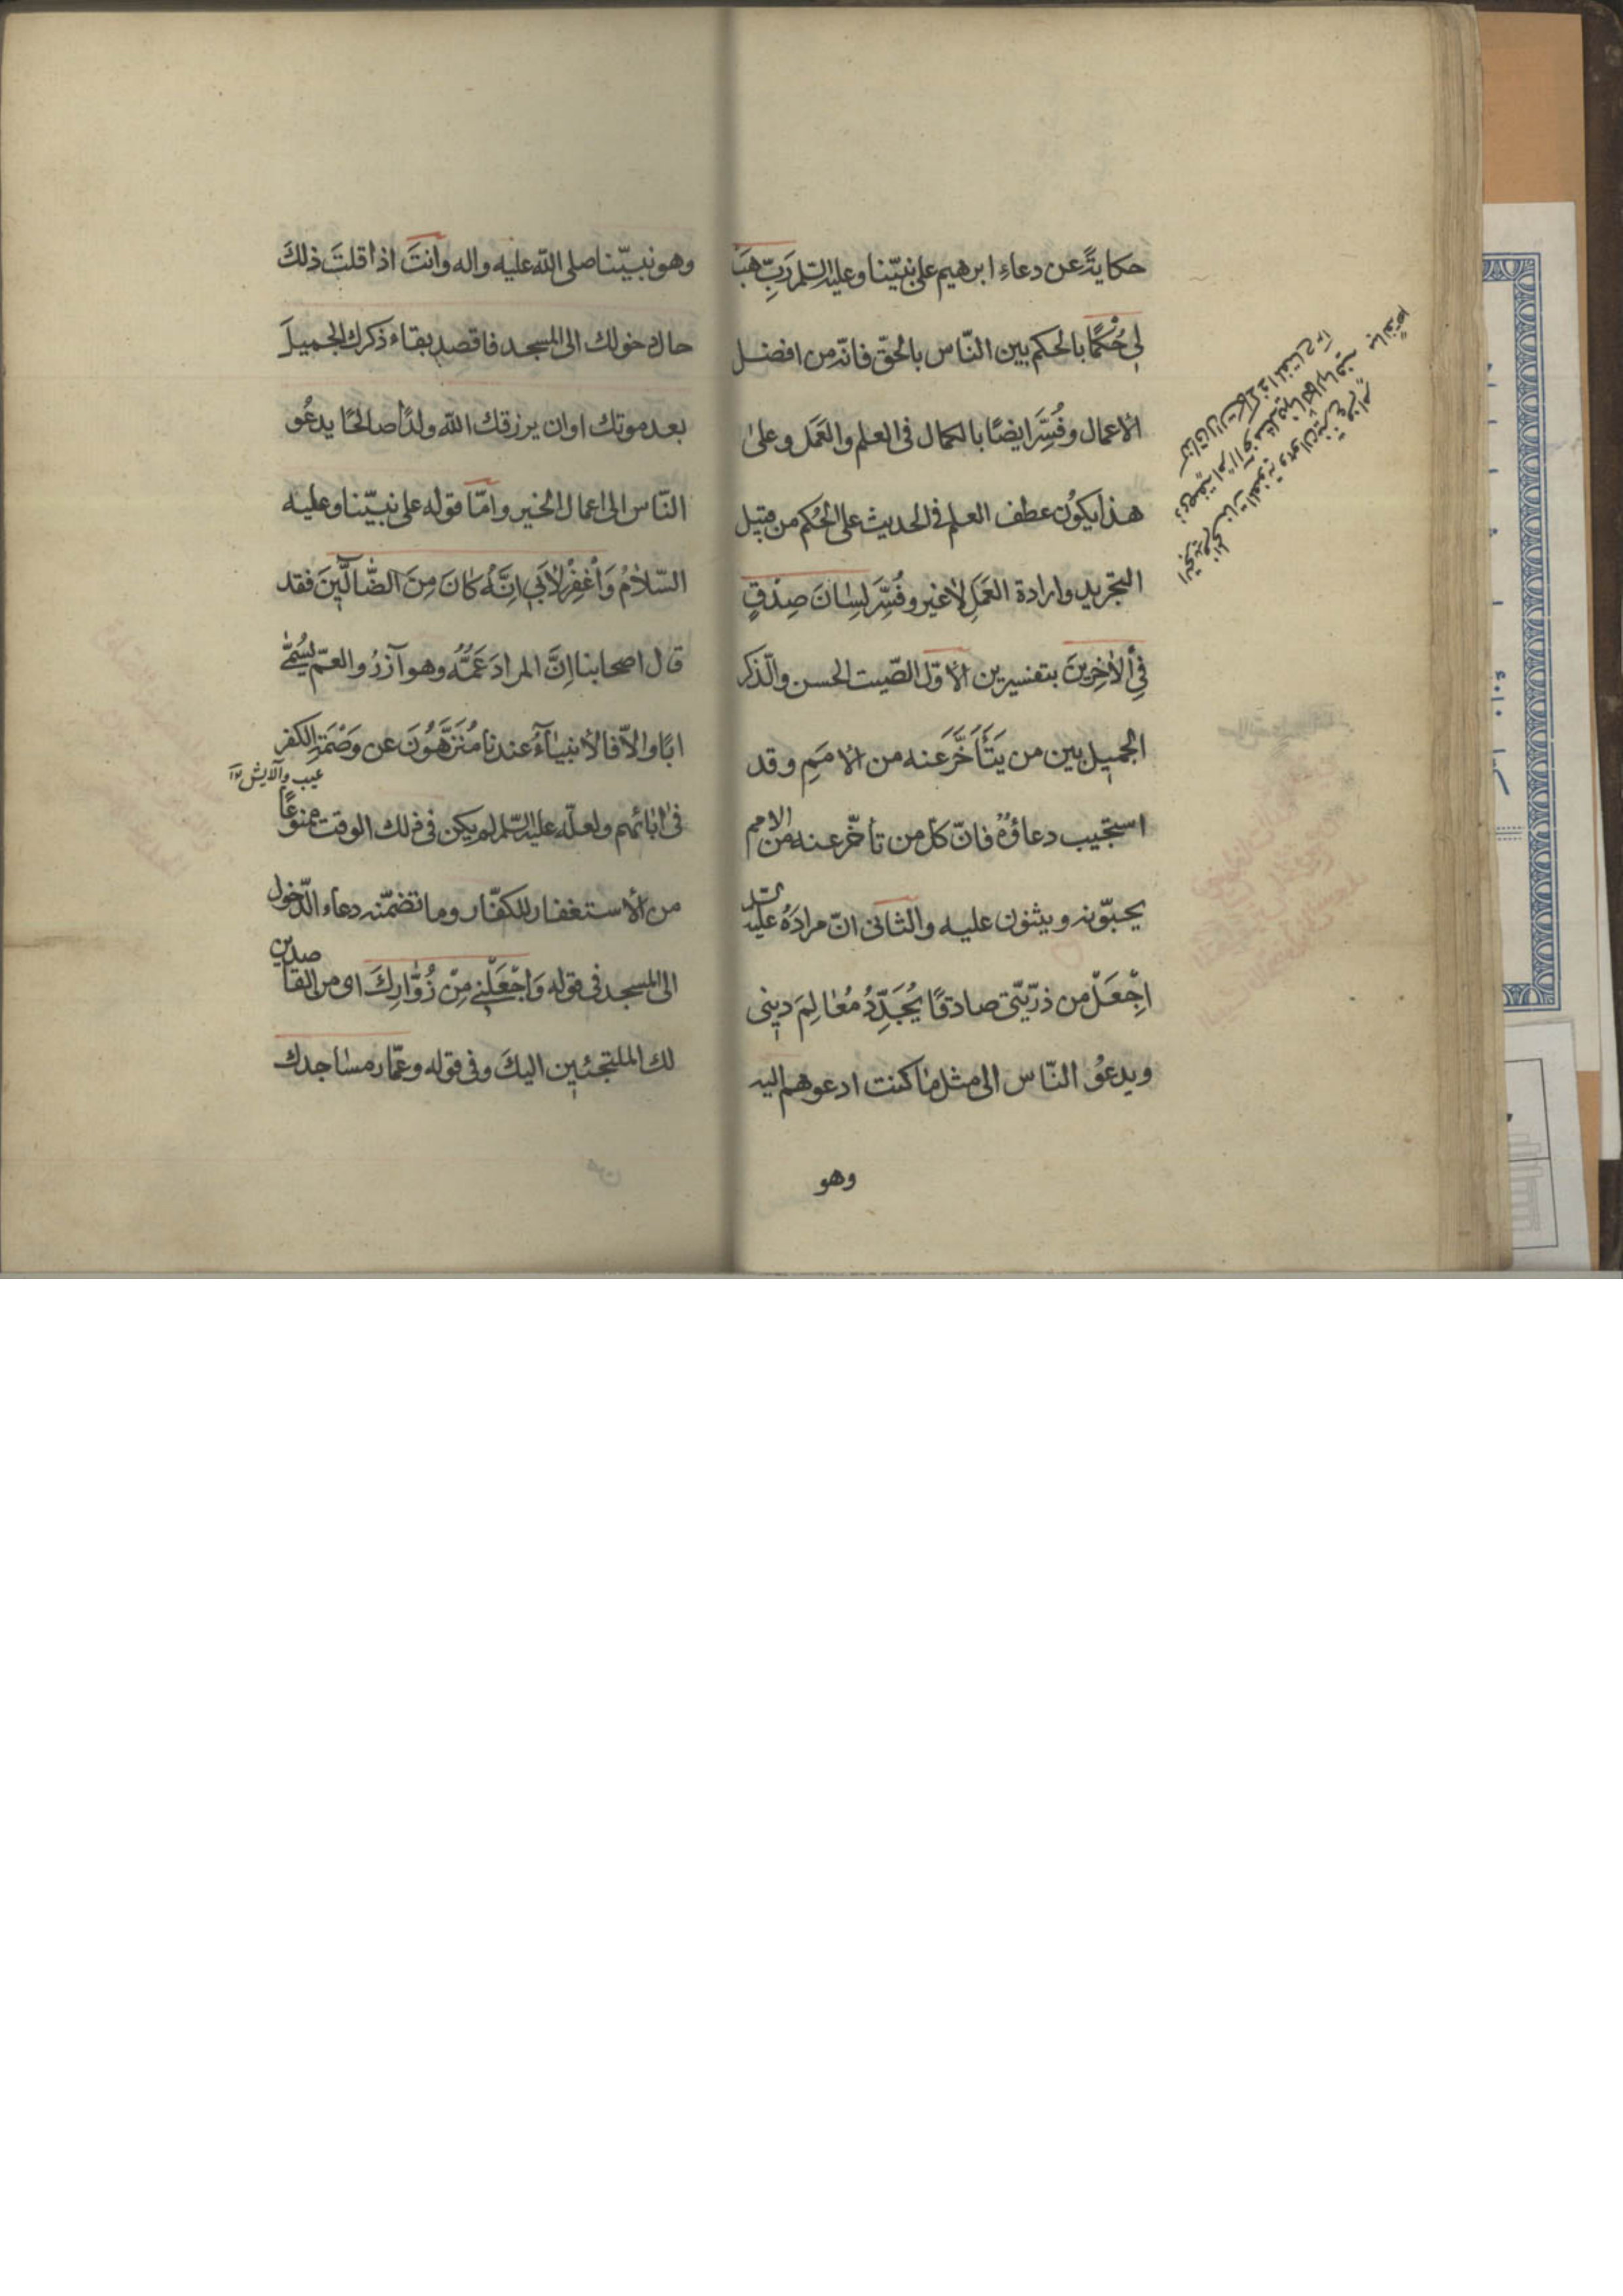 حكايةً عن دعاءِ ابرهيم على نبيّنا وعليه السلم رَبِّ هَبْ
لِي حُكْمًا بالحكم بين النّاس بالحقّ فانّه من افضل
الاعمال وفُسِّرَ ايضًا بالكمال فى العلم والعَمَل وعلى
هذا يكوُن عطف العلم فى الحديث على الحُكم من قبيل
التجريد وارادة العَمَلِ لا غير وفُسِّرَ لِسانَ صِدْقٍ
فِي الْاخِرِينَ بتفسيرين الاوّل الصّيت الحسن والذّكر
الجميل بين من يَتَأَخَّرَ عنه من الامَمِ وقد
استجيب دعاؤهُ فانّ كل من تأخّر عنه من الامم
يحبّونه ويثنون عليه والثانى انّ مرادَهُ عليه السّلم
اِجْعَلْ من ذرّيّتى صادقًا يُجَدِّدُ مَعالِمَ دينى
ويدعوْ النّاس الى مثل ما كنت ادعوهم اليه
وهو
وهو نبيّنا صلى اللّه عليه واله وانتَ اذا قلتَ ذلكَ
حال دخولك الى المسجد فاقصد بقاء ذكرك الجميلَ
بعد موتك او ان يرزقك اللّه ولدًا صالحًا يدعُو
النّاس الى اعمال الخير وامّا قوله على نبيّنا وعليه
السّلامُ وَاْغْفِرْ لاَبي اِنَّهُ كانَ مِنَ الضّالّينَ فقد
قال اصحابنا اِنَّ المرادَ عَمُّهُ وهو آزرُ والعمّ يُسَمّى
ابًا والاّ فالانبيآءُ عندنا مُنَزَّهُونَ عن وَصْمَةِ الكفر
عيب وآلايش ١٢
فى ابائهم ولعلّه عليه السّلم لم يكن فى ذلك الوقت ممنوعًا
من الاستغفار للكفّار وما تضمّنه دعاء الدّخول
الى المسجد فى قوله وَاجْعَلْنِي مِنْ زُوّارِكَ اى من القاصدين
لك الملتجئين اليكَ وفى قوله وعمّار مساجدك